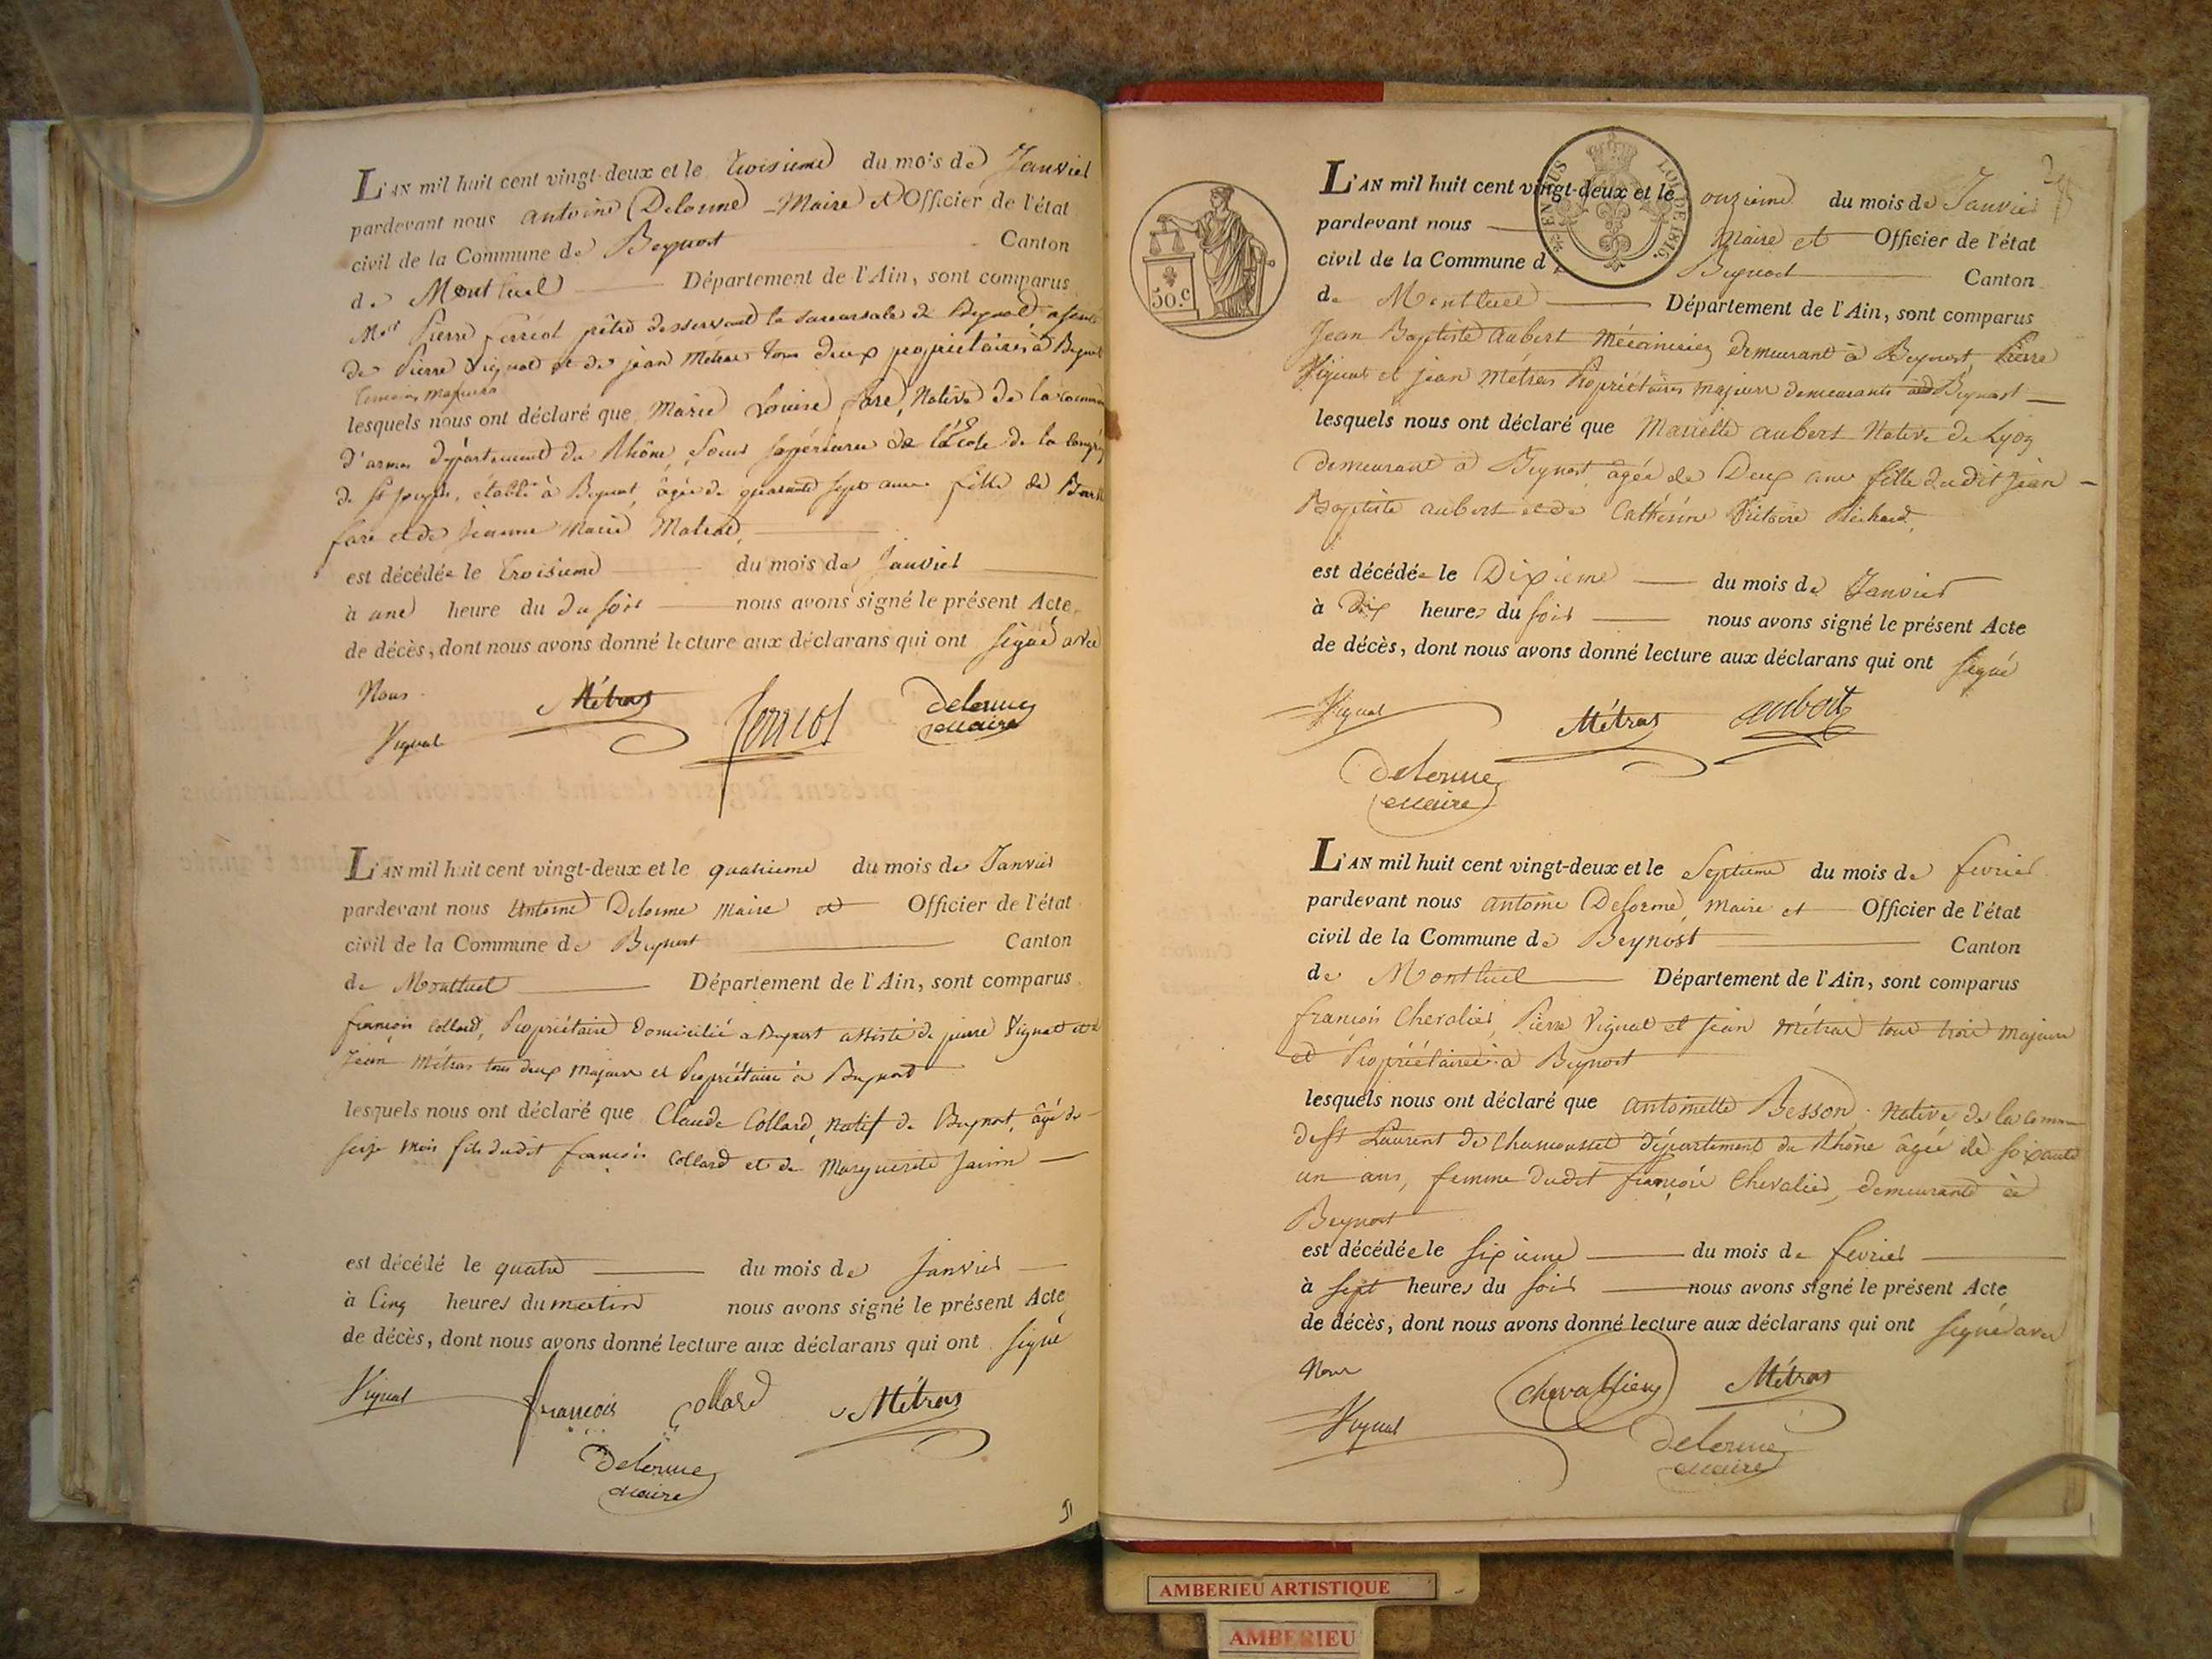 L'AN mil huit cent vingt-deux et le troisieme du mois de Janvier
pardevant nous antoine Delorme Maire et Officier de l'état
civil de la Commune de Beynost Canton
de Montluel Département de l'Ain, sont comparus
Mer Pierre ferréol prêtre desservant la succursale de Beynost
de Pierre Vignat et de jean Métras tous deux propriétaires à Beynost
temoins majeurs
lesquels nous ont déclaré que Marie Louise fare, Native de la commune
d'arnas département du Rhône, Soeur Supérieure de l'École de la
de St Joseph, établie à Beynost, âgée de quarante sept ans fille de
fare et de Jeanne Marie Matrat,
est décédée le troisieme du mois de Janvier
à une heure du du soir nous avons signé le présent Acte
de décès, dont nous avons donné lecture aux déclarans qui ont signé avec
Nous
Vignat Métras ferréol Delorme
maire
L'AN mil huit cent vingt-deux et le quatrieme du mois de Janvier
pardevant nous Antoine Delorme Maire et Officier de l'état
civil de la Commune de Beynost Canton
de Montluel Département de l'Ain, sont comparus
françois Collard, Propriétaire domicilié a Beynost assisté de pierre Vignat et de
Jean Métras tous deux majeurs et Propriétaires à Beynost
lesquels nous ont déclaré que Claude Collard, natif de Beynost, âgé de
seize mois fils dudit françois Collard et de Marguerite
est décédé le quatre du mois de Janvier
à Cinq heures du matin nous avons signé le présent Acte
de décès, dont nous avons donné lecture aux déclarans qui ont signé
Vignat françois Collard Métras
Delorme
maire
L'AN mil huit cent vingt-deux et le onzieme du mois de Janvier
pardevant nous Maire et Officier de l'état
civil de la Commune d Beynost Canton
de Montluel Département de l'Ain, sont comparus
EN SUS
LOI DE 1816.
50.c
Jean Baptiste aubert Mécanicien demeurant à Beynost, Pierre
Vignat et jean Métras Propriétaires majeurs demeurants à Beynost
lesquels nous ont déclaré que Mariette aubert Native de Lyon
demeurant à Beynost, âgée de Deux ans fille dudit Jean
Baptiste aubert et de Cathérine Victoire
est décédée le Dixieme du mois de Janvier
à Dix heures du soir nous avons signé le présent Acte
de décès, dont nous avons donné lecture aux déclarans qui ont signé
Vignat Métras aubert
Delorme
maire
L'AN mil huit cent vingt-deux et le Septieme du mois de fevrier
pardevant nous antoine Delorme, Maire et Officier de l'état
civil de la Commune de Beynost Canton
de Montluel Département de l'Ain, sont comparus
françois Chevalier, Pierre Vignat et Jean Métras tous trois majeurs
et Propriétaires à Beynost
lesquels nous ont déclaré que antoinette Besson, Native de la commune
de St Laurent de Chamousset département du Rhône âgée de soixante
un ans, femme dudit françois Chevalier, demeurante à
Beynost
est décédée le sixieme du mois de fevrier
à sept heures du soir nous avons signé le présent Acte
de décès, dont nous avons donné lecture aux déclarans qui ont signé avec
Nous
Vignat Chevallier Métras
Delorme
maire
AMBERIEU ARTISTIQUE
AMBERIEU